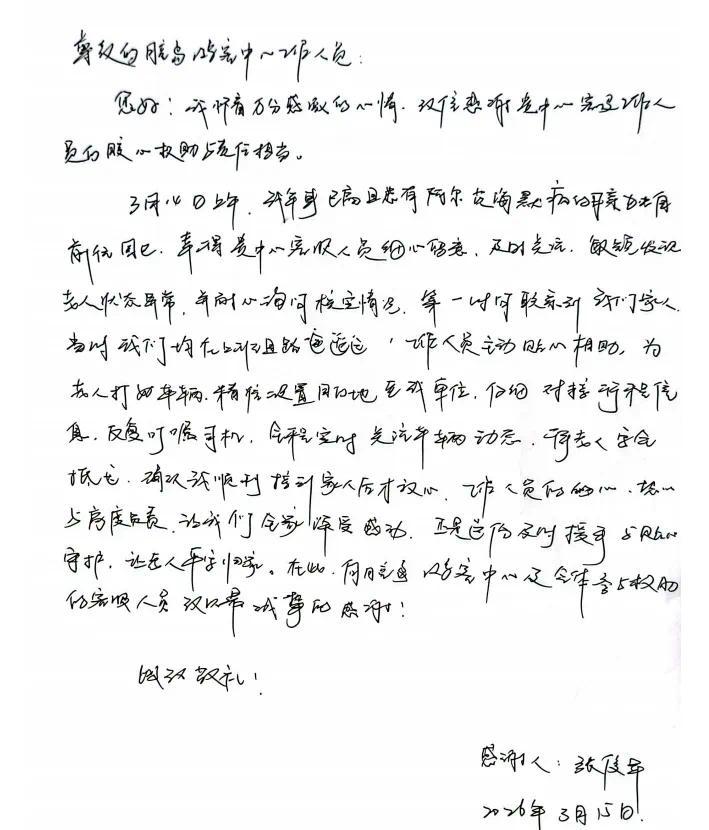 尊敬的胶岛访客中心工作人员：
您好！我怀着万分感激的心情，致信感谢贵中心客运工作人
员的暖心救助与责任担当。
3月14日上午，我年事已高且患有阿尔茨海默病的母亲独自
前往回已，幸得贵中心客服人员细心留意、及时关注，敏锐发现
老人状态异常，并耐心询问核实情况，第一时间联系到我们家人。
当时我们均在上班且路途遥远，工作人员主动贴心相助，为
老人打的车辆，精准设置目的地至我单位，仔细对接行程信
息，反复叮嘱司机，全程实时关注车辆动态，待老人安全
抵达，确认我顺利接到家人后才放心，工作人员的细心、热心
与高度负责，让我们全家深受感动，正是这份及时援手与贴心
守护，让老人平安归家。在此，向胶岛访客中心及全体参与救助
的客服人员致以最诚挚的感谢！
此致敬礼！
感谢人：张
2026年3月15日